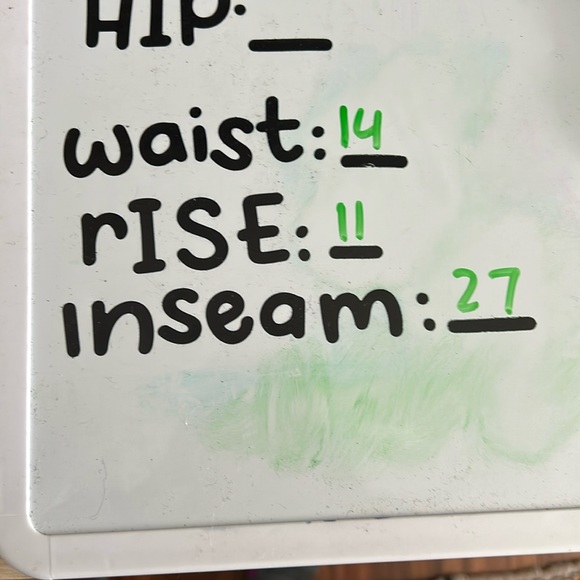 HIP:
waist: 14
rISE: 11
Inseam: 27